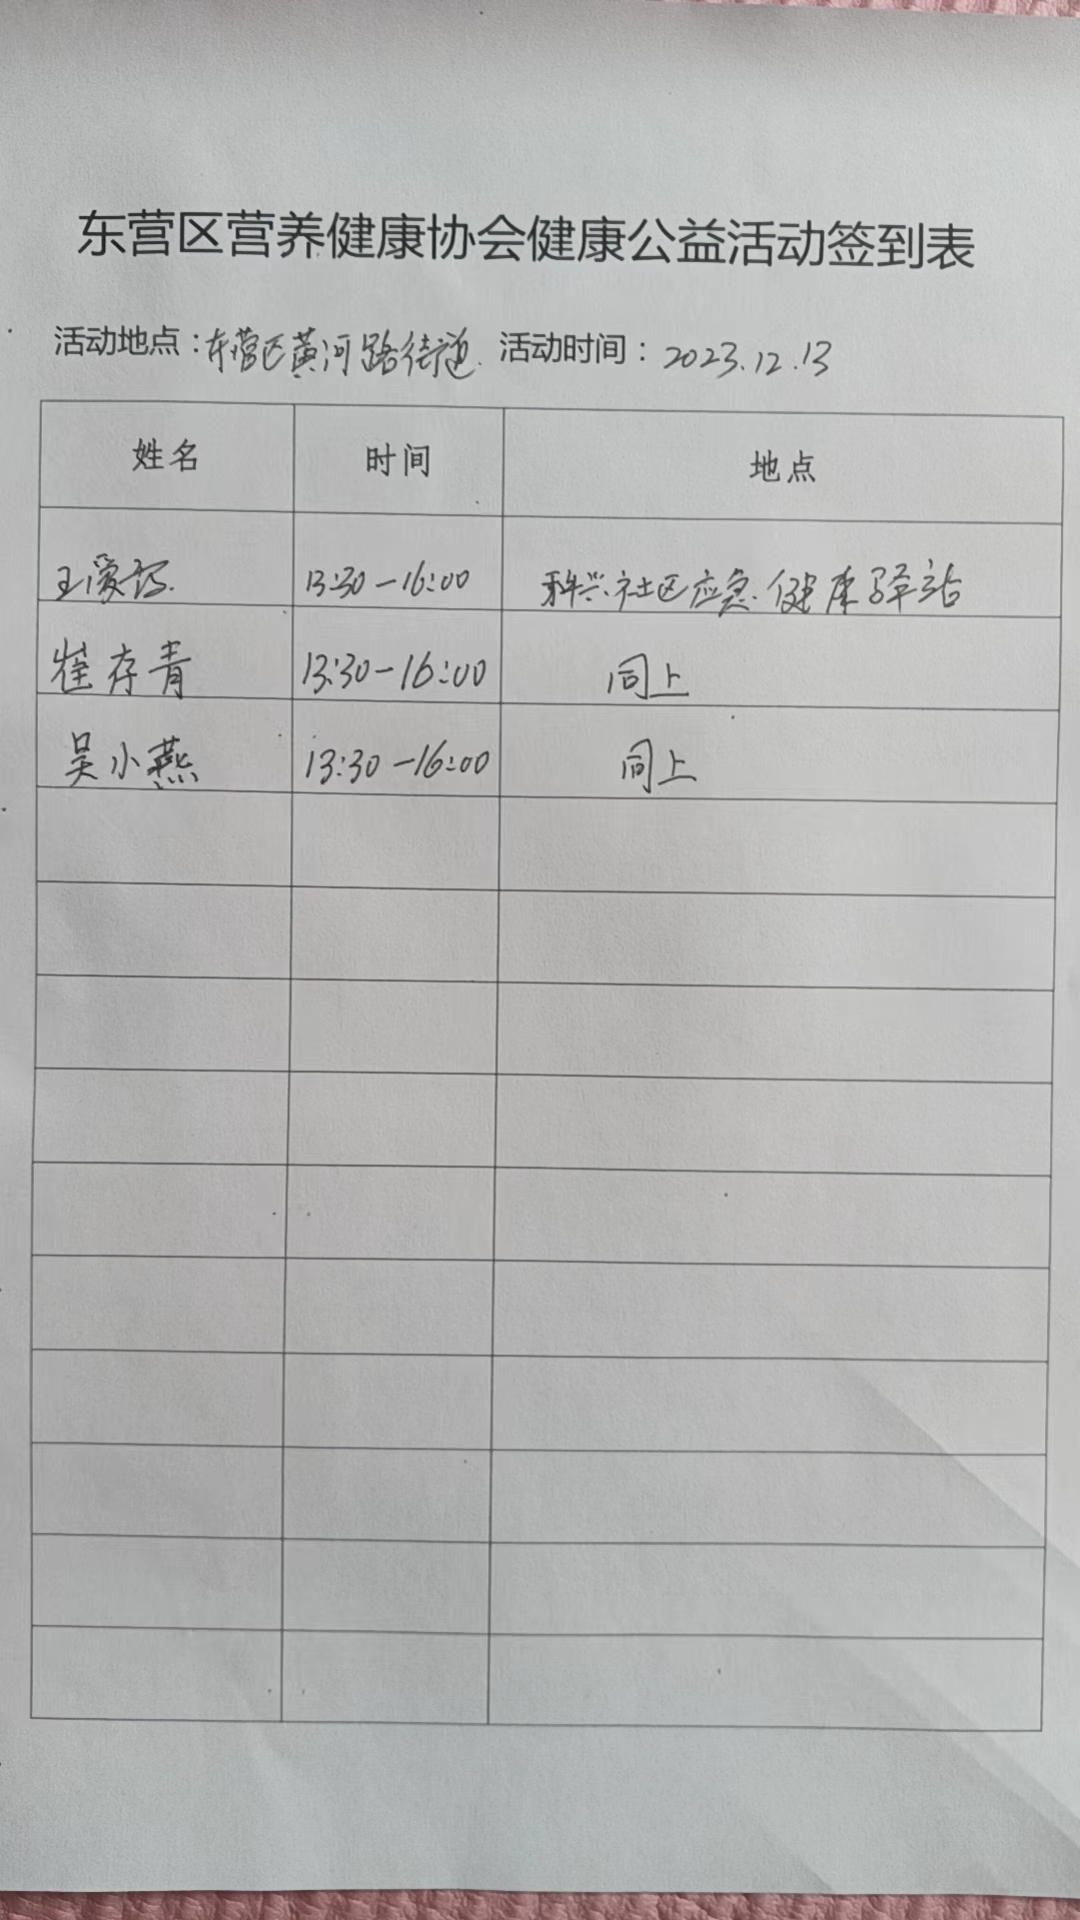 东营区营养健康协会健康公益活动签到表
活动地点：东营区黄河路街道 活动时间：2023.12.13
姓名 时间 地点
王爱 13:30-16:00 科兴社区应急健康驿站
崔存青 13:30-16:00 同上
吴小燕 13:30-16:00 同上